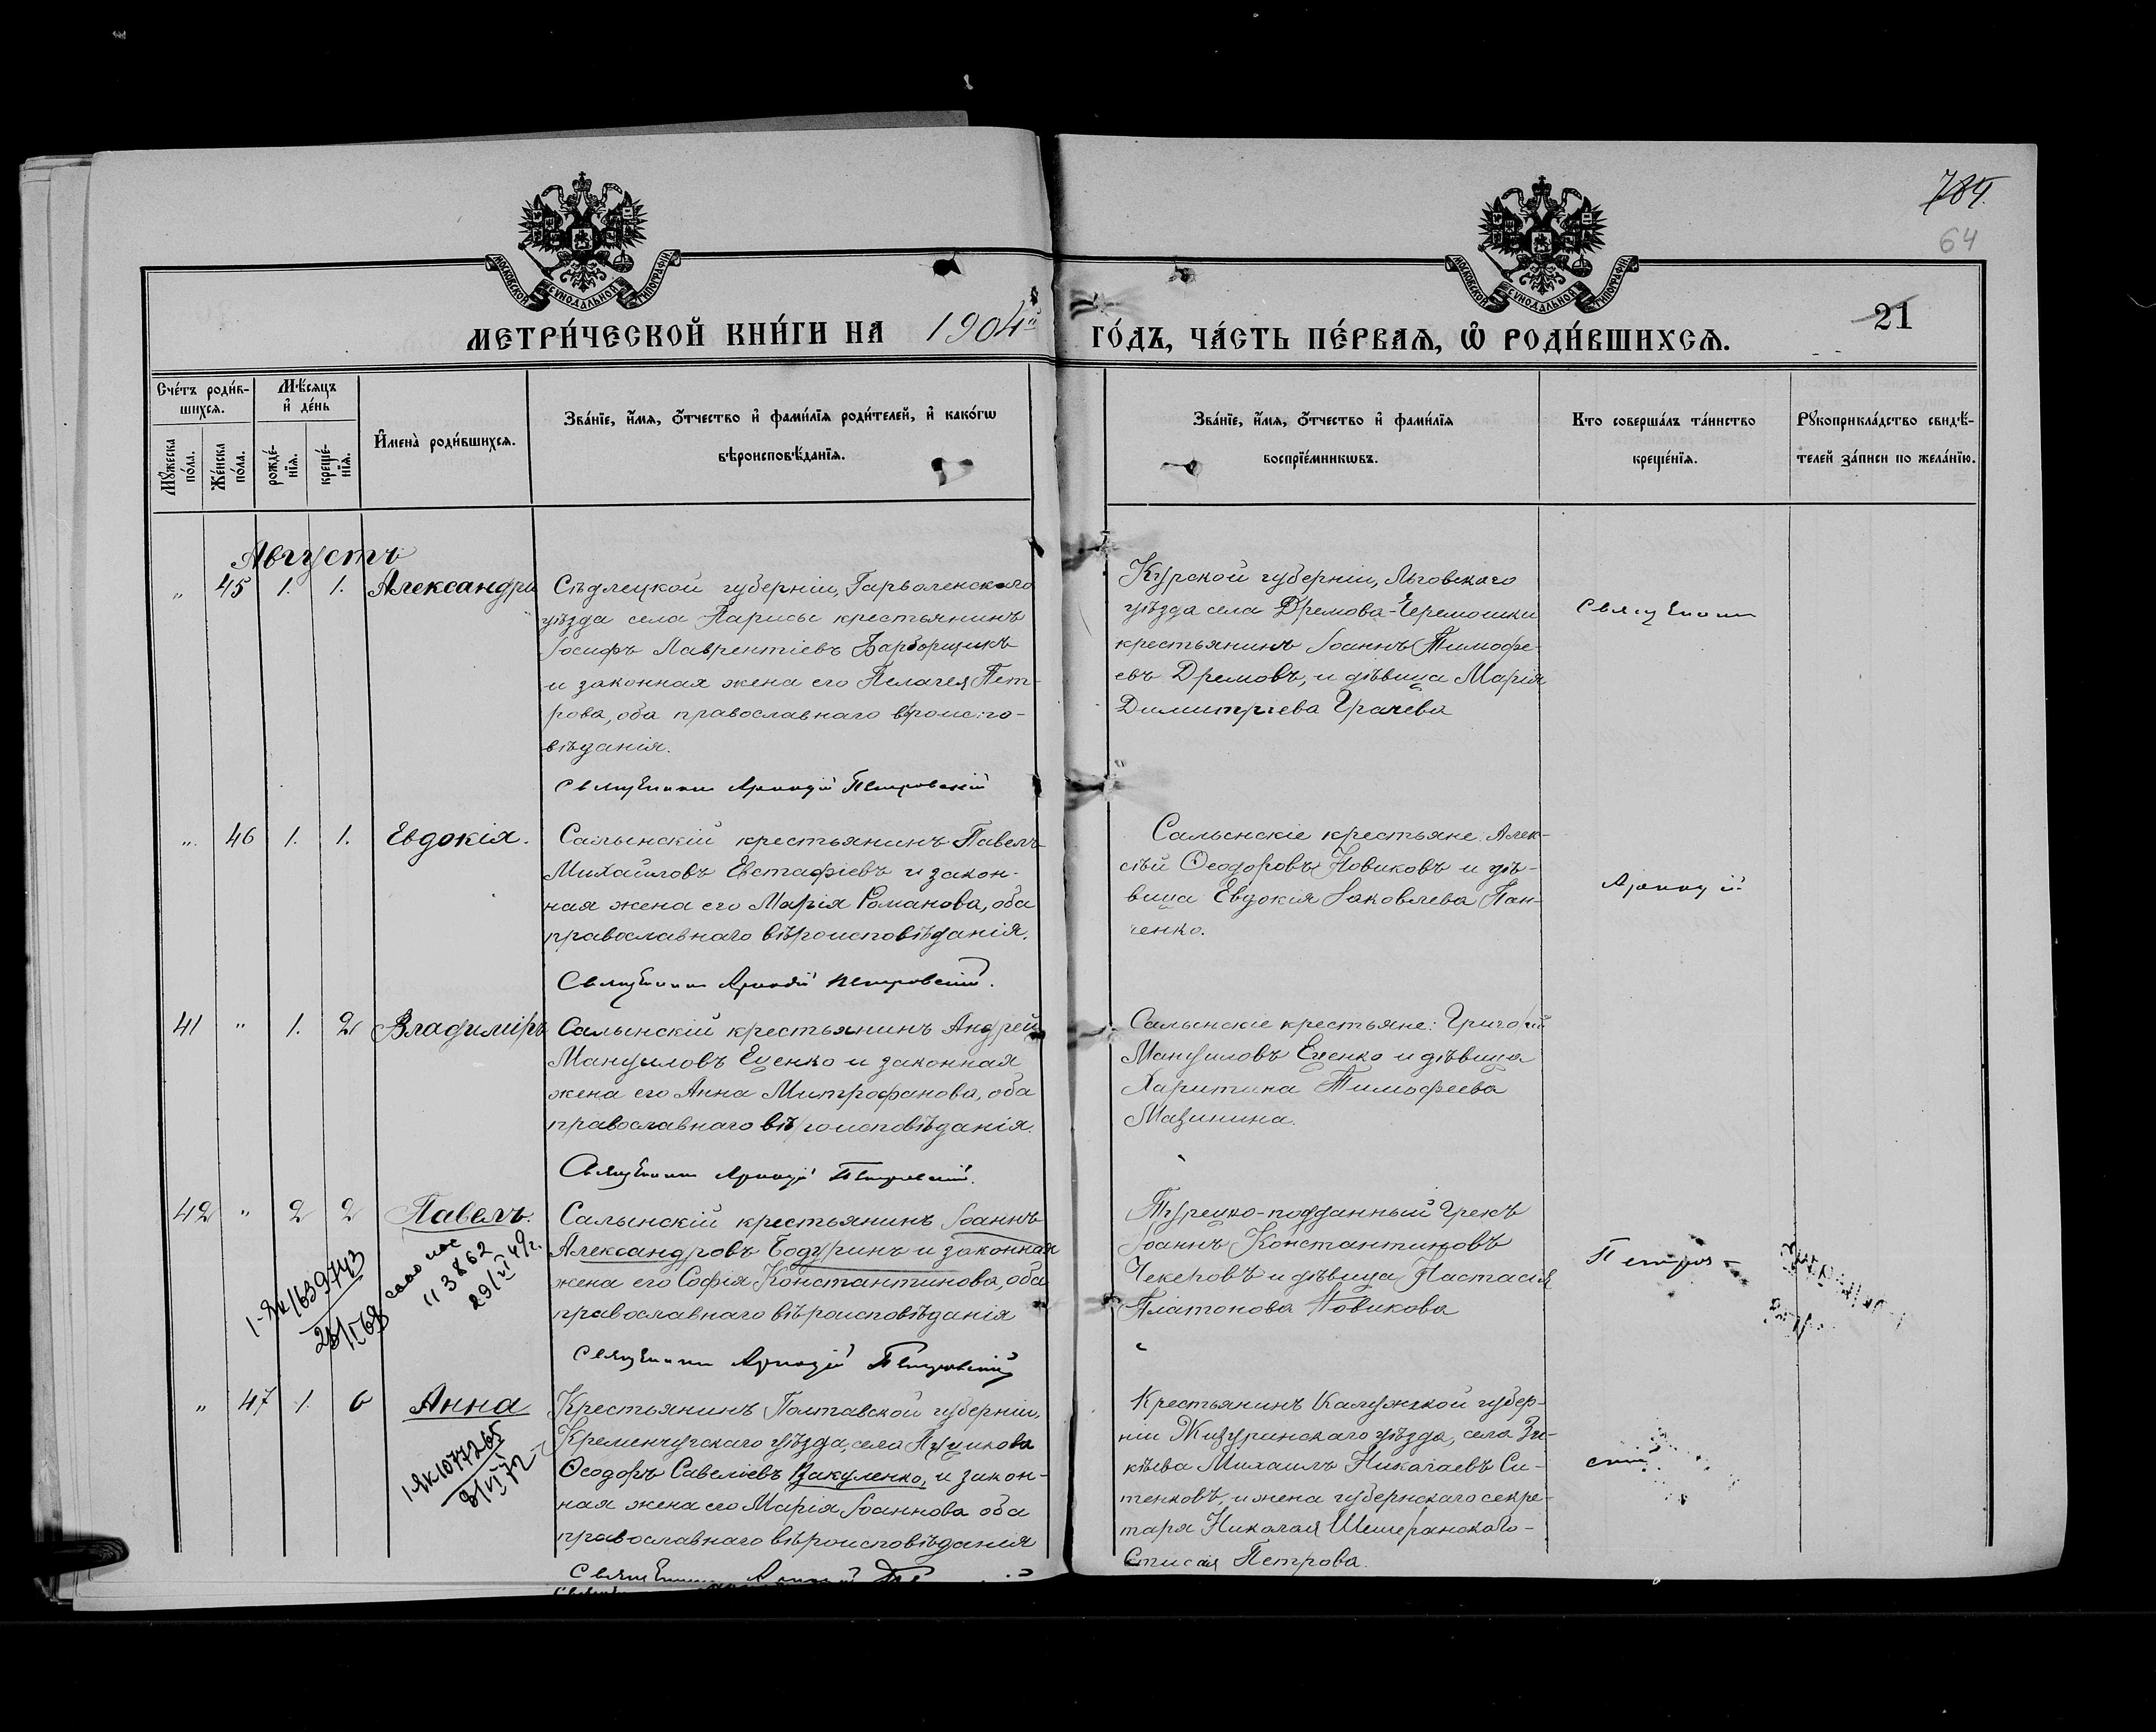 784.
64
МОСКОВСКОЙ СѴНОДАЛЬНОЙ ТИПОГРАФІИ
МОСКОВСКОЙ СѴНОДАЛЬНОЙ ТИПОГРАФІИ
21
МЕТРИ́ЧЕСКОЙ КНИ́ГИ НА 1904й
ГО́ДЪ, ЧА́СТЬ ПЕ́РВАѦ, Ѡ҆ РОДИ́ВШИХСѦ.
Сче́тъ роди́в-
шихсѧ.
Мꙋжеска по́ла.
Же́нска по́ла.
М҆ѣсѧцъ
и҆ де́нь
рожде́-
нїѧ.
креще́-
нїѧ.
И҆мена̀ роди́вшихсѧ.
Зва́нїе, и҆́мѧ, ѻ҆́тчество и҆ фами́лїѧ роди́телей, и҆ како́гѡ
вѣроисповѣ́данїѧ.
Зва́нїе, и҆́мѧ, ѻ҆́тчество и҆ фами́лїѧ
воспрїе́мникѡвъ.
Кто соверша́лъ та́инство
креще́нїѧ.
Рꙋкоприкла́дство свидѣ́-
телей за́писи по жела́нїю.
Августъ
„ 45 1. 1. Александра
Сѣдлецкой губерніи, Гарволенскаго
уѣзда села Парысы крестьянинъ
Іосифъ Лаврентіевъ Барборщикъ
и законная жена его Пелагея Пет-
рова, оба православнаго вѣроиспо-
вѣданія.
Священникъ Аркадій Петровскій
Курской губерніи, Льговскаго
уѣзда села Дремова-Черемошки
крестьянинъ Іоаннъ Тимофе-
евъ Дремовъ, и дѣвица Марія
Димитріева Грачева
Священникъ
„ 46 1. 1. Евдокія.
Салынскій крестьянинъ Павелъ
Михайловъ Евстафіевъ и закон-
ная жена его Марія Романова, оба
православнаго вѣроисповѣданія.
Священникъ Аркадій Петровскій.
Салынскіе крестьяне: Алек-
сѣй Ѳеодоровъ Новиковъ и дѣ-
вица Евдокія Іаковлева Пан-
ченко.
Аркадій
41 „ 1. 2 Владиміръ
Салынскій крестьянинъ Андрей
Мануиловъ Еценко и законная
жена его Анна Митрофанова, оба
православнаго вѣроисповѣданія.
Священникъ Аркадій Петровскій.
Салынскіе крестьяне: Григорій
Мануиловъ Еценко и дѣвица
Харитина Тимофеева
Мазинина.
42 „ 2 2 Павелъ.
Салынскій крестьянинъ Іоаннъ
Александровъ Бодуринъ и законная
жена его Софія Константинова, оба
православнаго вѣроисповѣданія
Священникъ Аркадій Петровскій
1-ЯК 1639743
113862
29/VI 49г.
Турецко-подданный грекъ
Іоаннъ Константиновъ
Чекеровъ и дѣвица Настасія
Платонова Новикова
Петров-
„ 47 1. 6 Анна
Крестьянинъ Полтавской губерніи,
Кременчугскаго уѣзда, села
Ѳеодоръ Савеліевъ Вакуленко, и закон-
ная жена его Марія Іоаннова оба
православнаго вѣроисповѣданія
Священникъ Аркадій
1-ЯК 1077265
Крестьянинъ Калужской губер-
ніи Жиздринскаго уѣзда, села Зи-
кѣева Михаилъ Николаевъ Си-
тенковъ, и жена губернскаго секре-
таря Николая
Петрова.
скій.